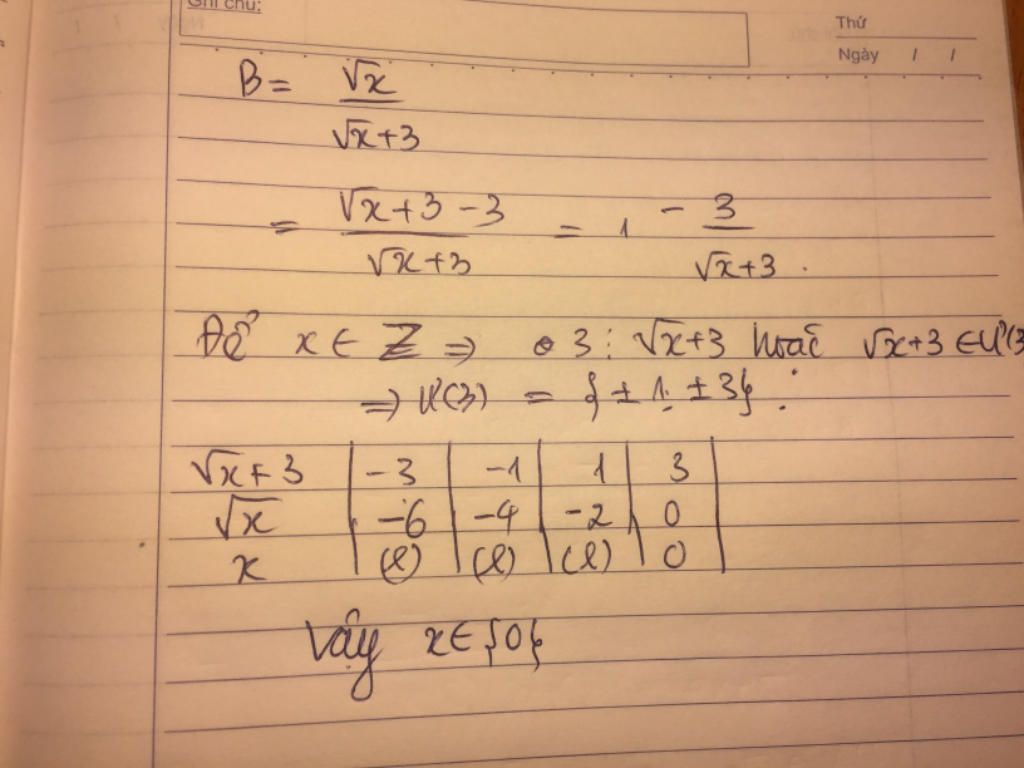 Ghi chú:
Thứ
Ngày / /
B = √x / √x+3
= √x+3-3 / √x+3 = 1 - 3 / √x+3 .
Để x ∈ Z ⇒ 3 ⋮ √x+3 hoặc √x+3 ∈ Ư(3
⇒ Ư(3) = {±1; ±3}.
√x+3 | -3 | -1 | 1 | 3 |
√x | -6 | -4 | -2 | 0 |
x | (l) | (l) | (l) | 0 |
Vậy x ∈ {0}